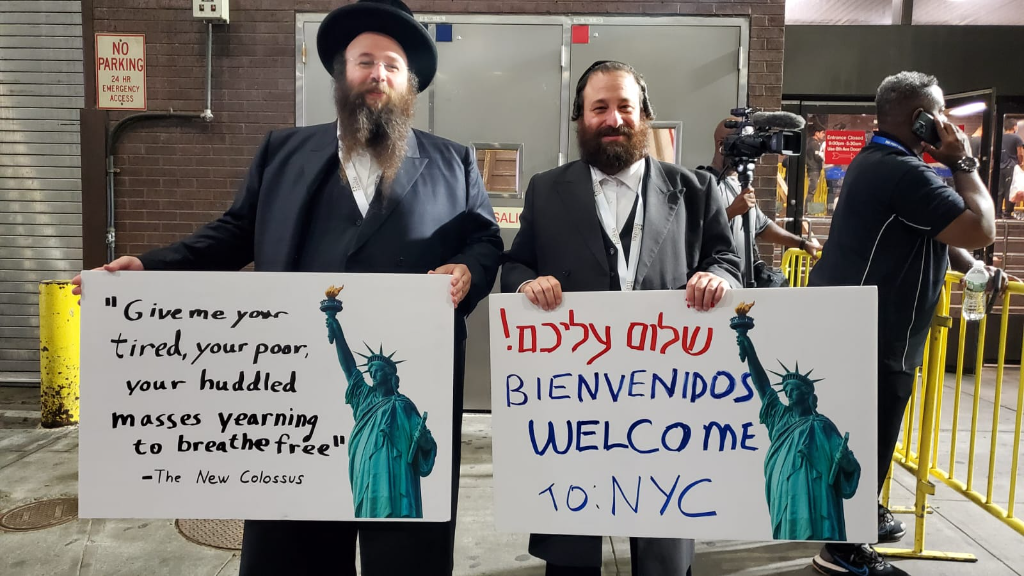 NO
PARKING
24 HR
EMERGENCY
ACCESS
"Give me your
tired, your poor,
your huddled
masses yearning
to breathe free"
-The New Colossus
שלום עליכם!
BIENVENIDOS
WELCOME
TO: NYC
Entrance Closed